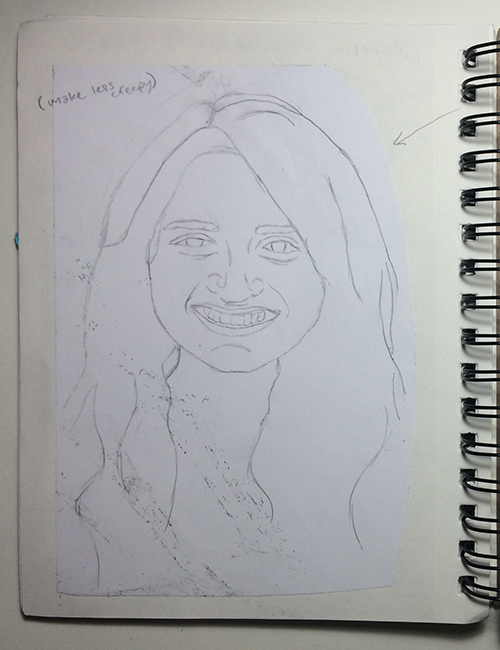 (make less creepy)